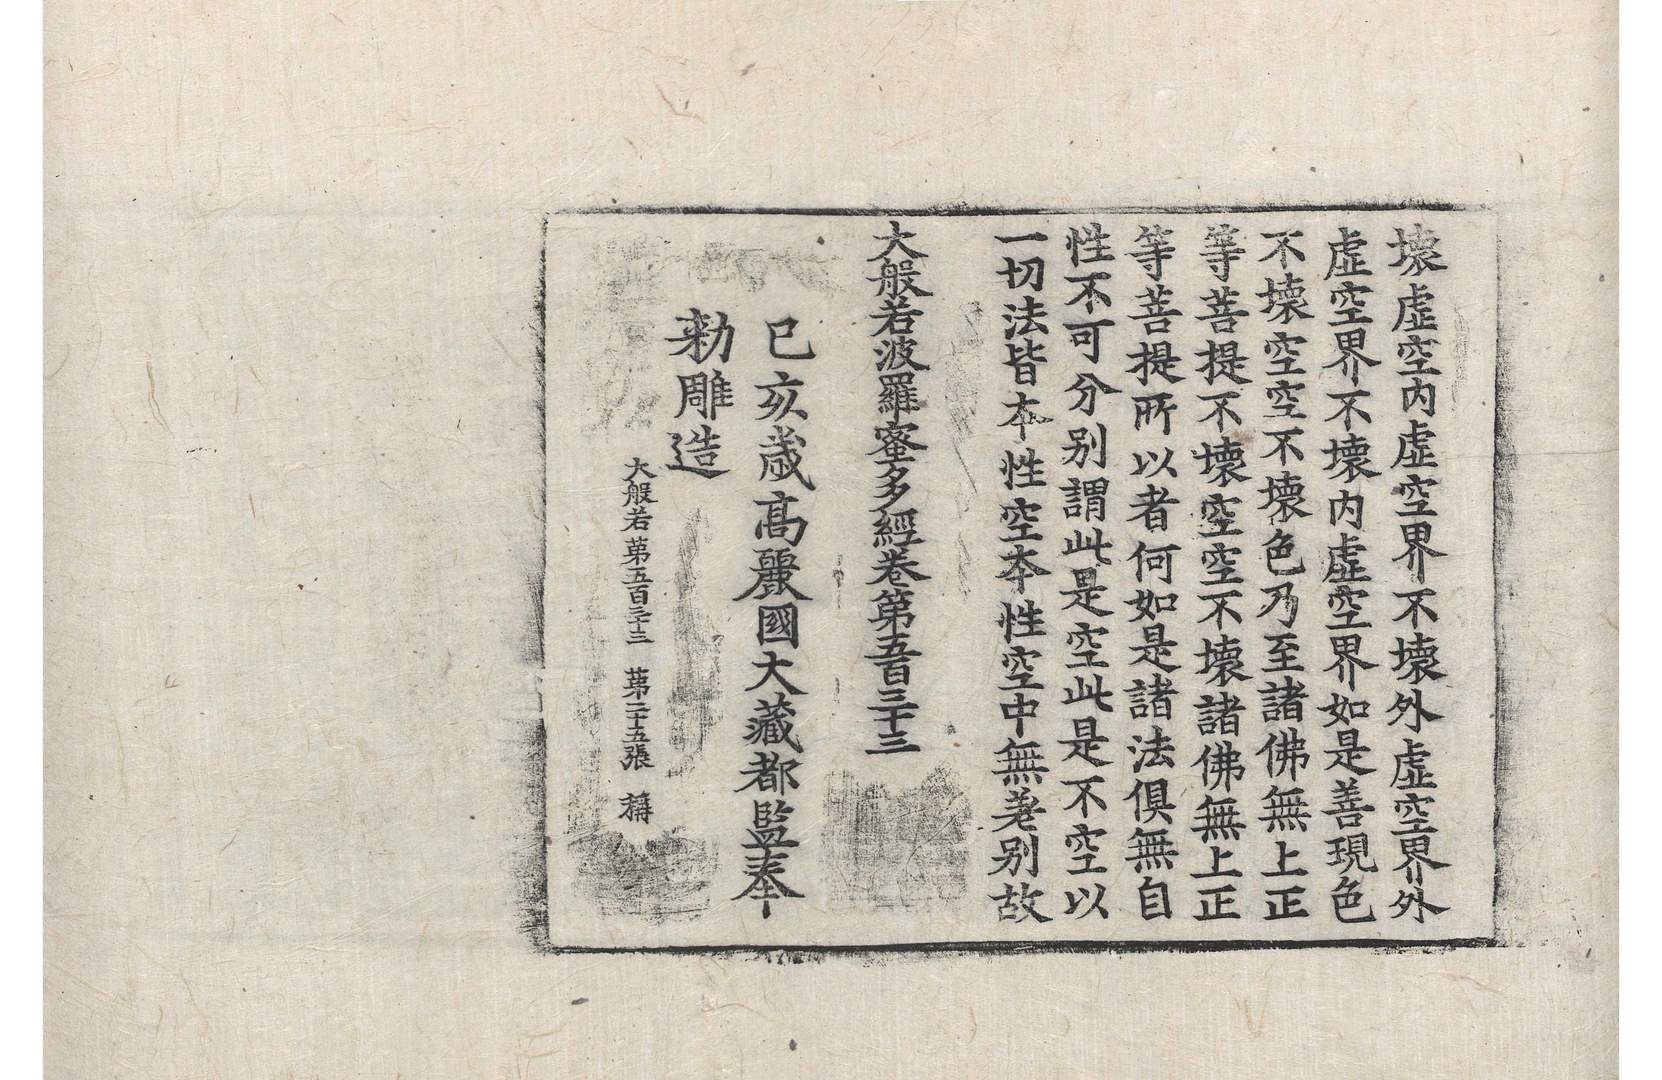 壞虛空內虛空界不壞外虛空界外
虛空界不壞內虛空界如是善現色
不壞空空不壞色乃至諸佛無上正
等菩提不壞空空不壞諸佛無上正
等菩提所以者何如是諸法俱無自
性不可分別謂此是空此是不空以
一切法皆本性空本性空中無差別故
大般若波羅蜜多經卷第五百三十三
己亥歲高麗國大藏都監奉
勑雕造
大般若第五百三十三 第二十五張 稱